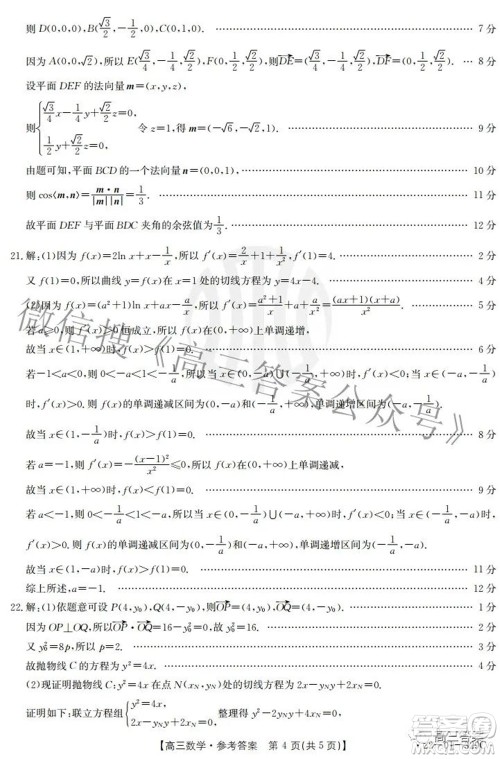 则 D(0,0,0), B(√3/2, -1/2, 0), C(0,1,0). 7分
因为 A(0,0,√2), 所以 E(√3/4, -1/4, √2/2), F(0, 1/2, √2/2), 则DE→=(√3/4, -1/4, √2/2), DF→=(0, 1/2, √2/2). 8分
设平面 DEF 的法向量 m=(x,y,z),
则{√3/4 x-1/4 y+√2/2 z=0, 令 z=1, 得 m=(-√6,-√2,1). 9分
由题可知, 平面 BCD 的一个法向量 n=(0,0,1). 10分
则 cos⟨m,n⟩=m·n/|m||n|=1/3. 11分
故平面 DEF 与平面 BDC 夹角的余弦值为1/3. 12分
21.解:(1)因为 f(x)=2ln x+x-1/x, 所以 f′(x)=2/x+1+1/x², f′(1)=4. 2分
又 f(1)=0, 所以曲线 y=f(x)在 x=1 处的切线方程为 y=4x-4. 4分
(2)因为 f(x)=(a²+1)ln x+ax-a/x, 所以 f′(x)=(a²+1)/x+a+a/x²=(ax+1)(x+a)/x². 5分
若 a≥0, 则 f′(x)>0, f(x)在(0,+∞)上单调递增,
故当 x∈(1,+∞)时, f(x)>f(1)=0. 6分
若-1<a<0, 则-1/a>1>-a>0, 当 x∈(0,-a)∪(-1/a,+∞)
时, f′(x)<0. 则 f(x)的单调递减区间为(0,-a)和(-1/a,+∞), 单调递增区间为(-a,-1/a).
故当 x∈(1,-1/a)时, f(x)>f(1)=0. 8分
若 a=-1, 则 f′(x)=-(x-1)²/x²≤0, 所以 f(x)在(0,+∞)上单调递减,
故当 x∈(1,+∞)时, f(x)<f(1)=0. 9分
若 a<-1, 则 0<-1/a<1<-a, 当 x∈(0,-1/a)∪(-a,+∞)时, f′(x)<0, 当 x∈(-1/a,-a)时,
f′(x)>0. 则 f(x)的单调递减区间为(0,-1/a)和(-a,+∞), 单调递增区间为(-1/a,-a).
故当 x∈(1,-a)时, f(x)>f(1)=0. 11分
综上所述, a=-1. 12分
22.解:(1)依题意可设 P(4,y₀), Q(4,-y₀), 则OP→=(4,y₀), OQ→=(4,-y₀). 1分
因为 OP⊥OQ, 所以OP→·OQ→=16-y₀²=0, 2分
又 y₀²=8p, 所以 p=2. 3分
故抛物线 C 的方程为 y²=4x. 4分
(2)现证明抛物线 C:y²=4x 在点 N(x_N,y_N)处的切线方程为 2x-y_N y+2x_N=0.
证明如下:联立方程组{y²=4x,
【高三数学·参考答案 第 4 页(共 5 页)】
微信搜《高三答案公众号》
高三答案